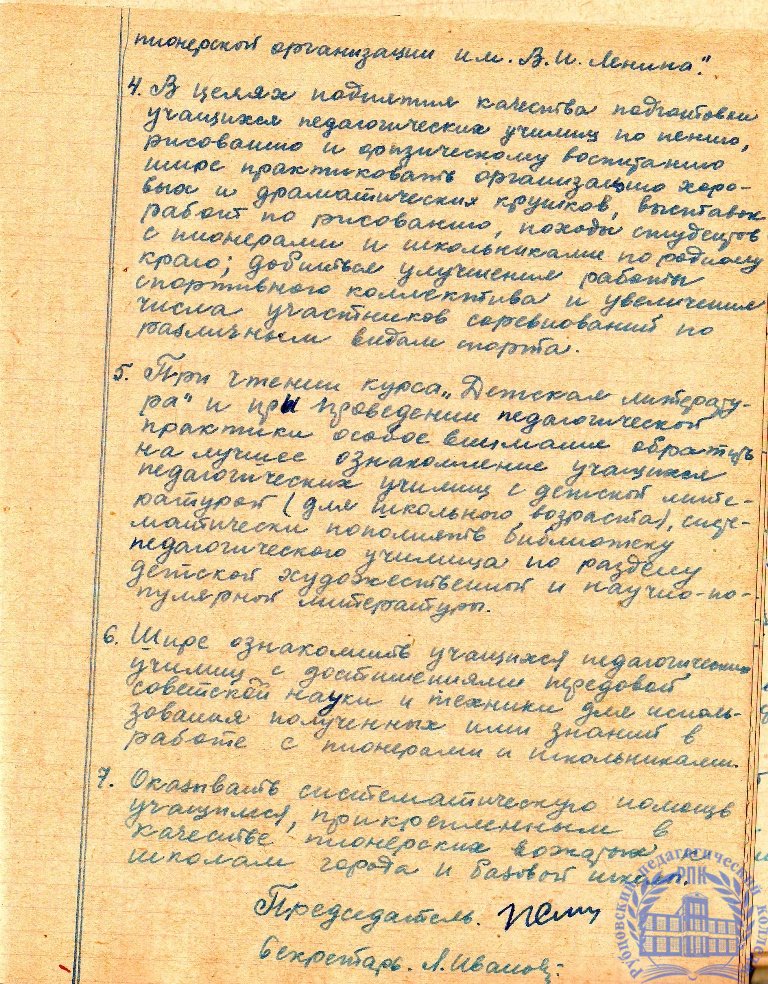 пионерской организации им. В.И. Ленина."
4. В целях поднятия качества подготовки
учащихся педагогических училищ по пению,
рисованию и физическому воспитанию
шире практиковать организацию хоро-
вых и драматических кружков, выставок
работ по рисованию, походы студентов
с пионерами и школьниками по родному
краю; добиться улучшения работы
спортивного коллектива и увеличения
числа участников соревнований по
различным видам спорта.
5. При чтении курса „Детская литерату-
ра" и при проведении педагогической
практики особое внимание обратить
на лучшее ознакомление учащихся
педагогических училищ с детской лите-
ратурой (для школьного возраста), систе-
матически пополнять библиотеку
педагогического училища по разделу
детской художественной и научно-по-
пулярной литературы.
6. Шире ознакомить учащихся педагогических
училищ с достижениями передовой
советской науки и техники для исполь-
зования полученных ими знаний в
работе с пионерами и школьниками.
7. Оказывать систематическую помощь
учащимся, прикрепленным в
качестве пионерских вожатых к
школам города и базовой школы.
Председатель.
Секретарь. Л. Иванов
Рубцовский педагогический колле
РПК